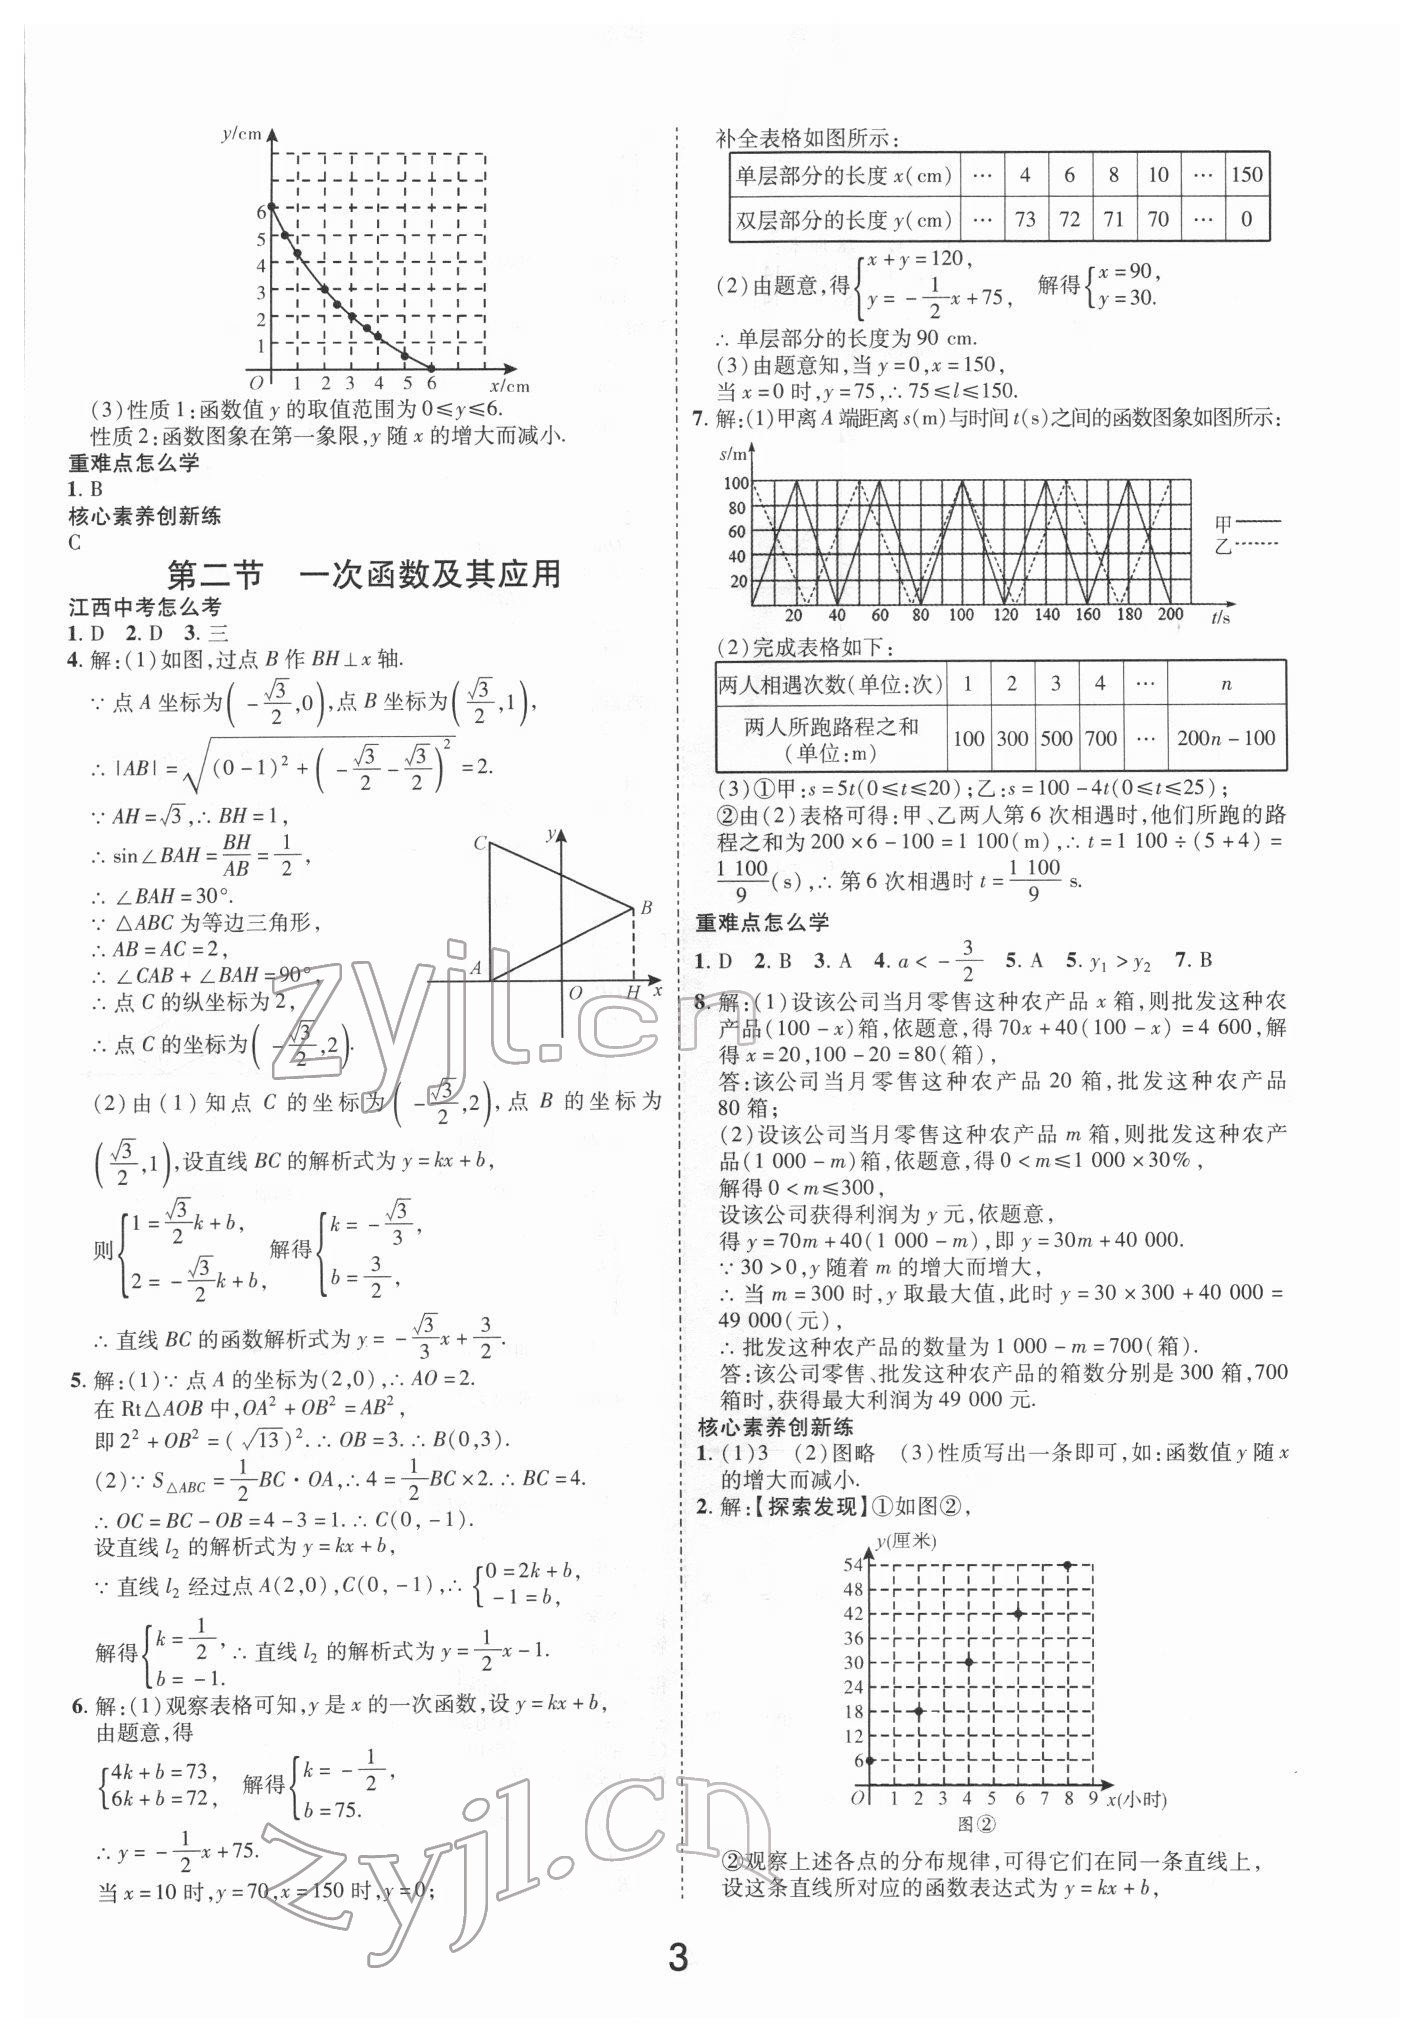 y/cm
6
5
4
3
2
1
O 1 2 3 4 5 6 x/cm
(3)性质1:函数值 y 的取值范围为0≤y≤6.
性质2:函数图象在第一象限,y 随 x 的增大而减小.
重难点怎么学
1. B
核心素养创新练
C
第二节 一次函数及其应用
江西中考怎么考
1. D 2. D 3. 三
4. 解:(1)如图,过点 B 作 BH⊥x 轴.
∵点 A 坐标为(-√3/2,0),点 B 坐标为(√3/2,1),
∴|AB|=√((0-1)²+(-√3/2-√3/2)²)=2.
∵AH=√3,∴BH=1,
∴sin∠BAH=BH/AB=1/2,
∴∠BAH=30°.
∵△ABC 为等边三角形,
∴AB=AC=2,
∴∠CAB+∠BAH=90°,
∴点 C 的纵坐标为2,
∴点 C 的坐标为(-√3/2,2).
C y B A O H x
(2)由(1)知点 C 的坐标为(-√3/2,2),点 B 的坐标为
(√3/2,1),设直线 BC 的解析式为 y=kx+b,
则{1=√3/2k+b, 2=-√3/2k+b, 解得{k=-√3/3, b=3/2,
∴直线 BC 的函数解析式为 y=-√3/3x+3/2.
5. 解:(1)∵点 A 的坐标为(2,0),∴AO=2.
在 Rt△AOB 中,OA²+OB²=AB²,
即2²+OB²=(√13)².∴OB=3.∴B(0,3).
(2)∵S△ABC=1/2BC·OA,∴4=1/2BC×2.∴BC=4.
∴OC=BC-OB=4-3=1.∴C(0,-1).
设直线 l₂ 的解析式为 y=kx+b,
∵直线 l₂ 经过点 A(2,0),C(0,-1),∴{0=2k+b, -1=b,
解得{k=1/2, b=-1. ∴直线 l₂ 的解析式为 y=1/2x-1.
6. 解:(1)观察表格可知,y 是 x 的一次函数,设 y=kx+b,
由题意,得
{4k+b=73, 6k+b=72, 解得{k=-1/2, b=75.
∴y=-1/2x+75.
当 x=10 时,y=70,x=150 时,y=0;
补全表格如图所示:
单层部分的长度 x(cm) … 4 6 8 10 … 150
双层部分的长度 y(cm) … 73 72 71 70 … 0
(2)由题意,得{x+y=120, y=-1/2x+75, 解得{x=90, y=30.
∴单层部分的长度为 90 cm.
(3)由题意知,当 y=0,x=150,
当 x=0 时,y=75,∴75≤l≤150.
7. 解:(1)甲离 A 端距离 s(m)与时间 t(s)之间的函数图象如图所示:
s/m
100
80
60
40
20
甲
乙
20 40 60 80 100 120 140 160 180 200 t/s
(2)完成表格如下:
两人相遇次数(单位:次) 1 2 3 4 … n
两人所跑路程之和(单位:m) 100 300 500 700 … 200n-100
(3)①甲:s=5t(0≤t≤20);乙:s=100-4t(0≤t≤25);
②由(2)表格可得:甲、乙两人第6次相遇时,他们所跑的路
程之和为200×6-100=1 100(m),∴t=1 100÷(5+4)=
1 100/9(s),∴第6次相遇时 t=1 100/9 s.
重难点怎么学
1. D 2. B 3. A 4. a<-3/2 5. A 5. y₁>y₂ 7. B
8. 解:(1)设该公司当月零售这种农产品 x 箱,则批发这种农
产品(100-x)箱,依题意,得70x+40(100-x)=4 600,解
得 x=20,100-20=80(箱),
答:该公司当月零售这种农产品 20 箱,批发这种农产品
80 箱;
(2)设该公司当月零售这种农产品 m 箱,则批发这种农产
品(1 000-m)箱,依题意,得0<m≤1 000×30%,
解得0<m≤300,
设该公司获得利润为 y 元,依题意,
得 y=70m+40(1 000-m),即 y=30m+40 000.
∵30>0,y 随着 m 的增大而增大,
∴当 m=300 时,y 取最大值,此时 y=30×300+40 000=
49 000(元),
∴批发这种农产品的数量为 1 000-m=700(箱).
答:该公司零售、批发这种农产品的箱数分别是 300 箱,700
箱时,获得最大利润为 49 000 元.
核心素养创新练
1. (1)3 (2)图略 (3)性质写出一条即可,如:函数值 y 随 x
的增大而减小.
2. 解:【探索发现】①如图②,
y(厘米)
54
48
42
36
30
24
18
12
6
O 1 2 3 4 5 6 7 8 9 x(小时)
图②
②观察上述各点的分布规律,可得它们在同一条直线上,
设这条直线所对应的函数表达式为 y=kx+b,
3
zyjl.cn
zyjl.cn